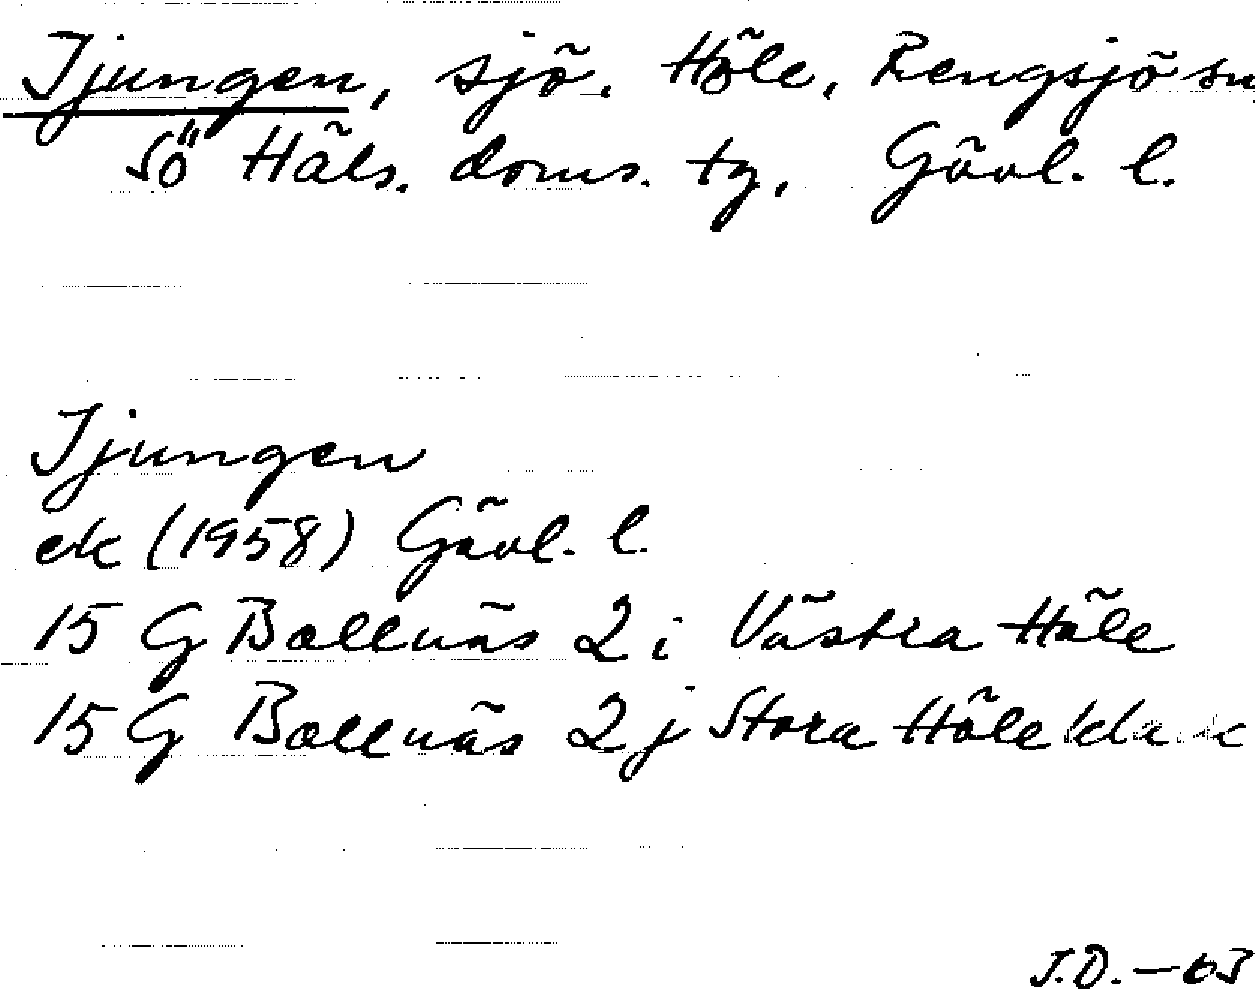 Tjungen, sjö. Höle, Rengsjö sn
Sö Häls. doms. tg, Gävl. l.
Tjungen
ek (1958) Gävl. l.
15 G Bollnäs 2 i Västra Höle
15 G Bollnäs 2 j Stora Höleklack
J.D. — 63